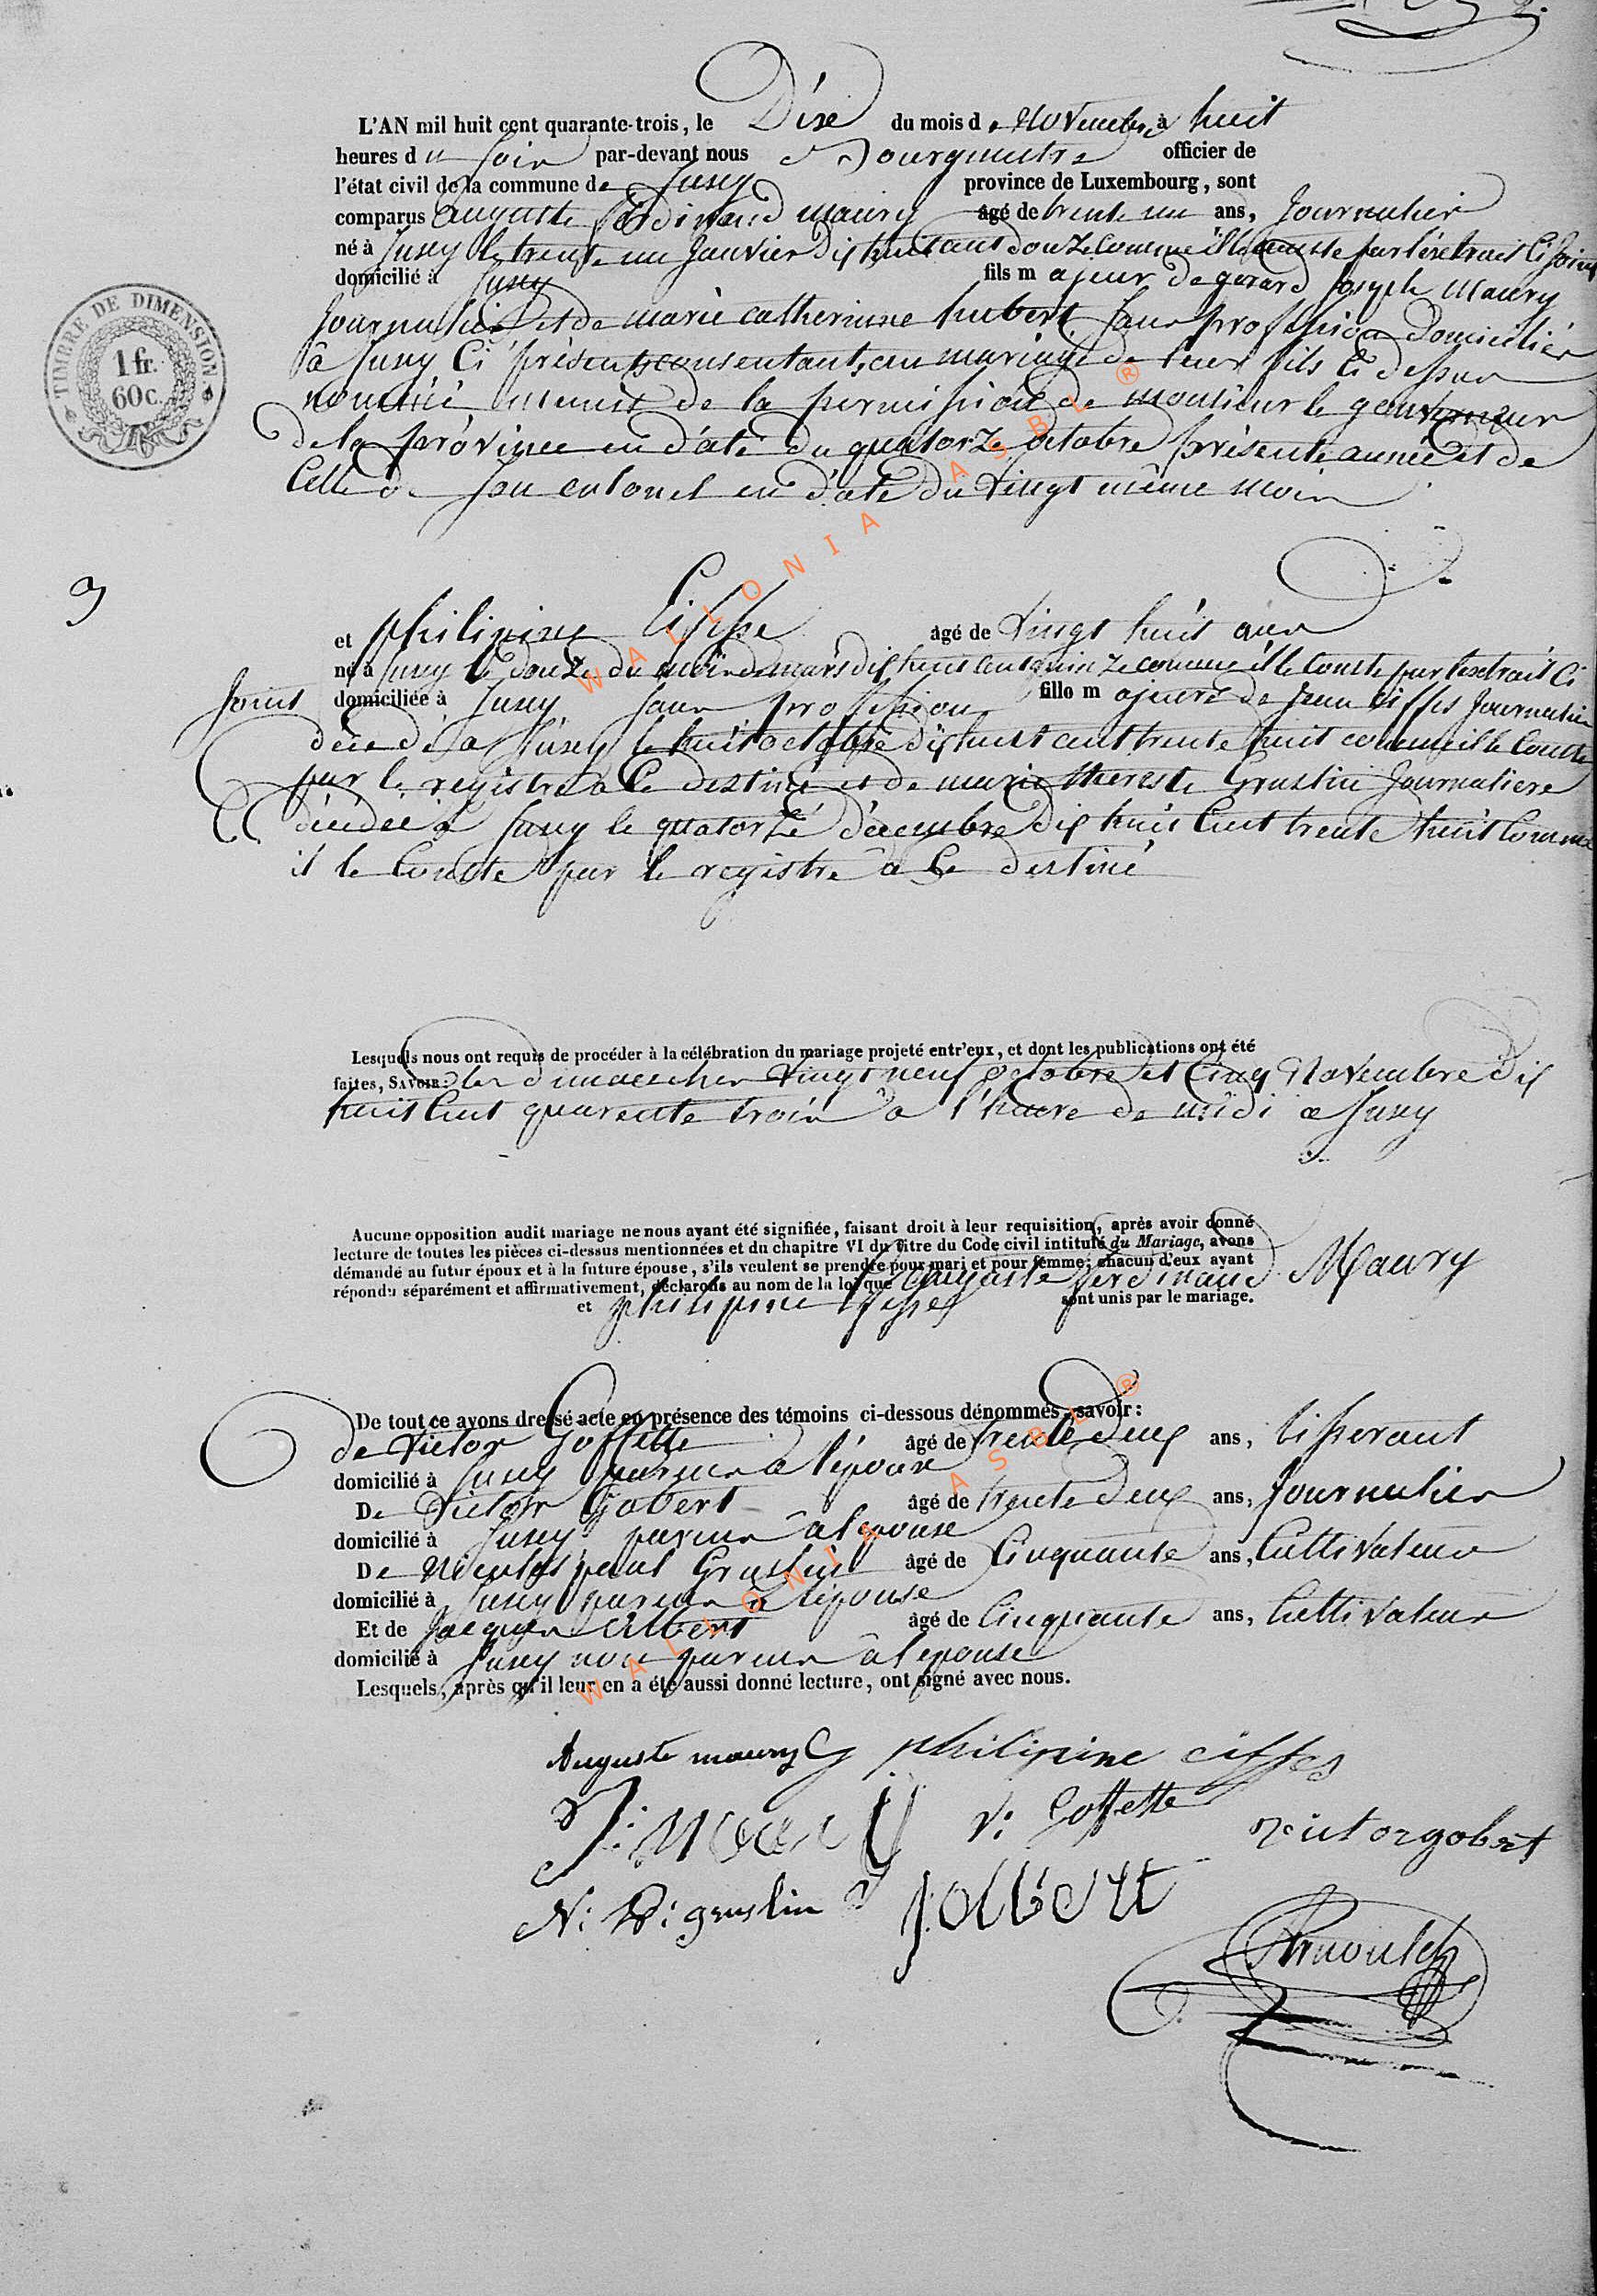 L'AN mil huit cent quarante-trois, le Dixe du mois de Novembre à huit
heures du Soir par-devant nous Bourgmestre officier de
l'état civil de la commune de Jusey province de Luxembourg, sont
comparus auguste ferdinand maury âgé de trente un ans, Journalier
né à Jusey le trente un Janvier dix huit cent douze comme il le conste par l'extrait ci Joint
domicilié à Jusey fils majeur de gerard Joseph Maury
Journalier et de marie catherinne hubert Sans profession domiciliés
à Jusey Ci présents consentant au mariage de leur fils ci dessus
nommé, muni de la permission de monsieur le gouverneur
de la province en date du quatorze octobre présente année et de
Celle de son colonel en date du vingt même mois
TIMBRE DE DIMENSION
1 fr.
60 c.
9
et philipine Ciffse âgé de vingt huit ans
né à Jusey le douze du mois de mars dix huit cent quinze comme il le conste par l'extrait Ci
Joint domiciliée à Jusey Sans profession fille majeure de Jean Ciffes Journalier
décédé à Jusey le huit octobre dix huit cent trente huit comme il le conste
par le registre à Ce destiné et de marie therese Gruslin Journaliere
décédée à Jusey le quatorze décembre dix huit Cent trente huit Comme
il le Conste par le registre à Ce destiné
Lesquels nous ont requis de procéder à la célébration du mariage projeté entr'eux, et dont les publications ont été
faites, SAVOIR: les dimanches vingt neuf octobre et Cinq Novembre dix
huit Cent quarente trois à l'heure de midi a Jusey
Aucune opposition audit mariage ne nous ayant été signifiée, faisant droit à leur requisition, après avoir donné
lecture de toutes les pièces ci-dessus mentionnées et du chapitre VI du titre du Code civil intitulé du Mariage, avons
démandé au futur époux et à la future épouse, s'ils veulent se prendre pour mari et pour femme; chacun d'eux ayant
répondu séparément et affirmativement, déclarons au nom de la loi que auguste ferdinand Maury
et philipine sont unis par le mariage.
De tout ce avons dressé acte en présence des témoins ci-dessous dénommés, savoir:
de Victor Goffette âgé de trente deux ans, tisserant
domicilié à Jusey parent à l'épouse
De Victor Gobert âgé de trente deux ans, Journalier
domicilié à Jusey parent à lepouse
De Nicolas paul Gruslin âgé de Cinquante ans, Cultivateur
domicilié à Jusey parent à lépouse
Et de Jacques albert âgé de Cinquante ans, Cultivateur
domicilié à Jusey non parent à lepouse
Lesquels, après qu'il leur en a été aussi donné lecture, ont signé avec nous.
Auguste maury philipine ciffes
J: Maury V: Goffette victor gobert
N: P: gruslin J. albert
Arnould
WALLONIA ASBL ®
WALLONIA ASBL ®